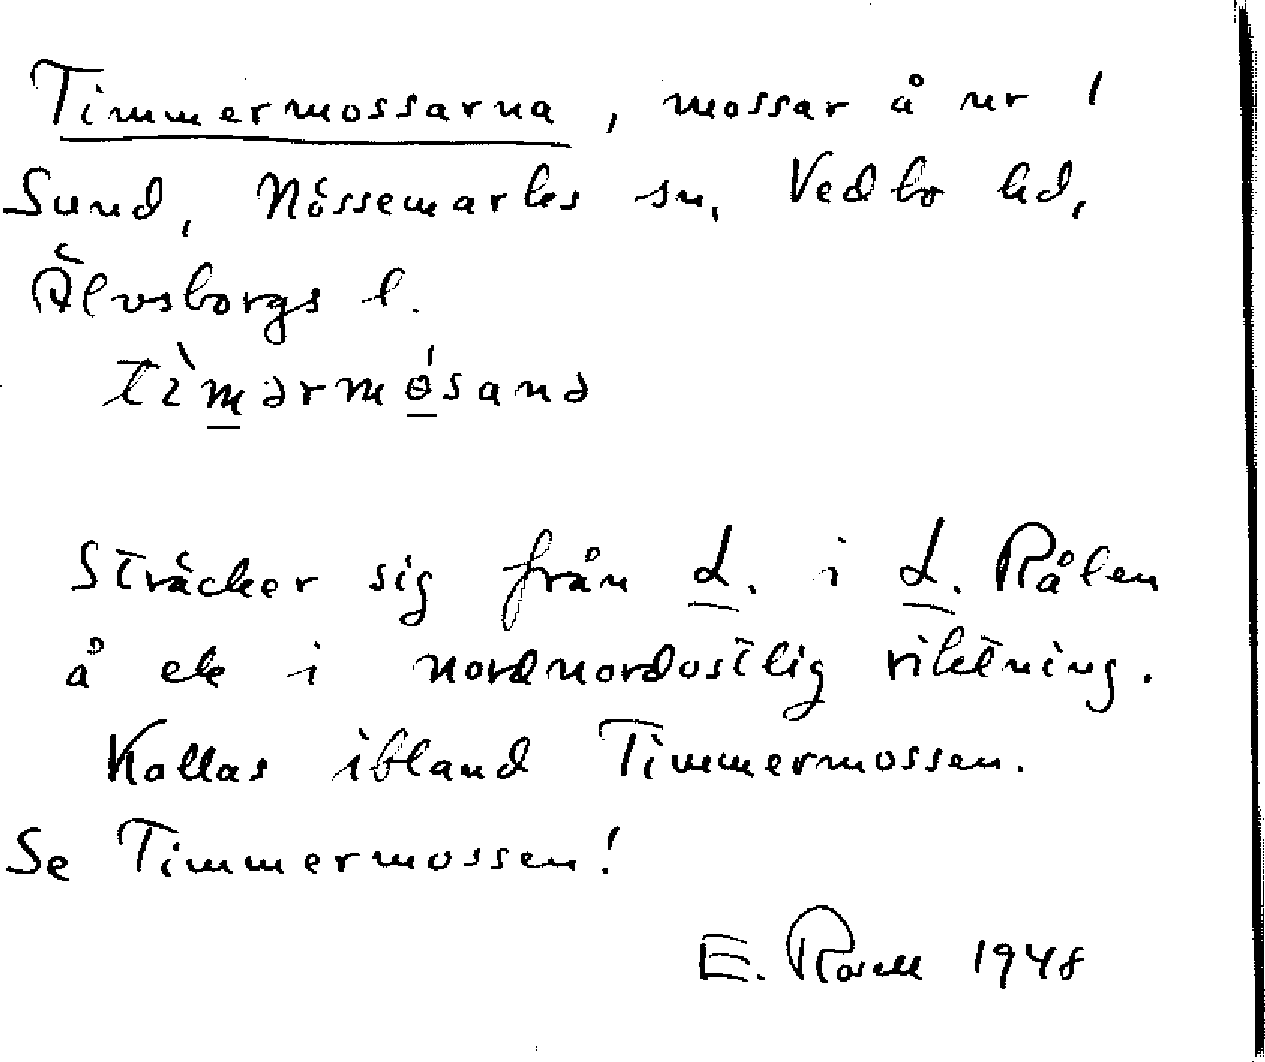 Timmermossarna, mossar å nr 1
Sund, Nössemarks sn, Vedbo hd,
Älvsborgs l.
tìmərmɵ́sanə
Sträcker sig från L. i L. Rålen
å ek i nordnordostlig riktning.
Kallas ibland Timmermossen.
Se Timmermossen!
E. Rosell 1948